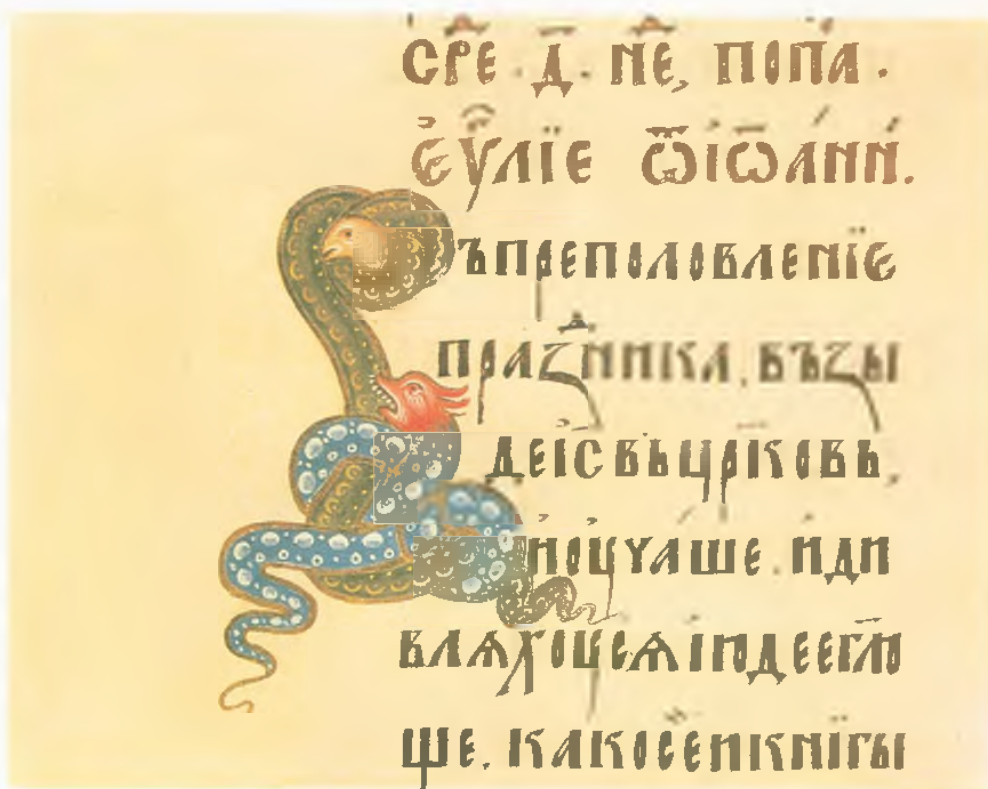 СРЕ҃ · Д҃ · НЕ҃, ПОПА ·
Є҆ѴЛЇЕ Ѿ І҆Ѡ҃АНН.
ЪПРЕПОЛОВЛЕНЇЄ
ПРАꙀⷣННИКА. ВЪꙀЫ
ДЕІСВЬЦРКОВЬ,
И҆ОЦУАШЕ. ИДИ
ВЛѦХОЦСѦ ІЮДЕЕГЛЮ
ЩЕ. КАКОСЕИКНЇГЫ